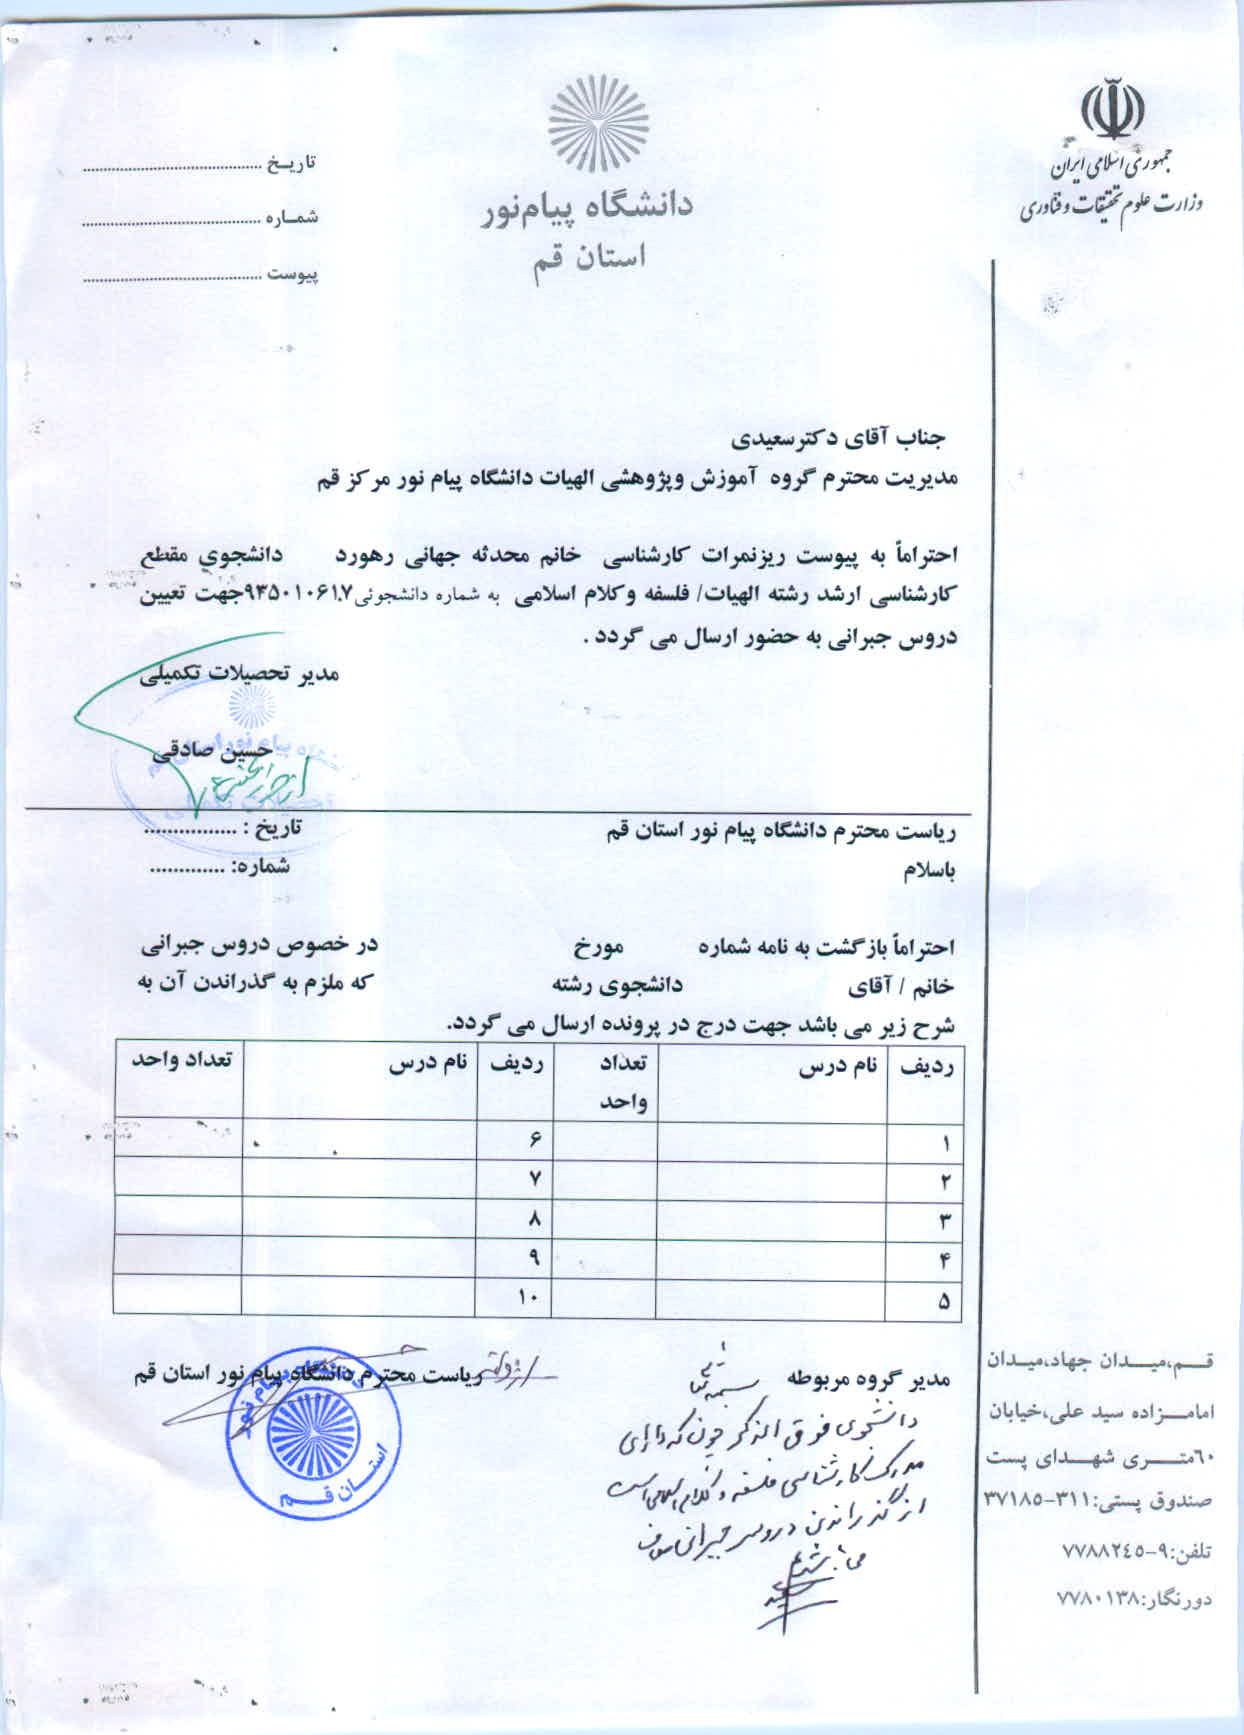 جمهوری اسلامی ایران
وزارت علوم تحقیقات و فناوری
دانشگاه پیام‌نور
استان قم
تاریـخ ............................................
شمـاره ............................................
پیوست ............................................
جناب آقای دکترسعیدی
مدیریت محترم گروه آموزش وپژوهشی الهیات دانشگاه پیام نور مرکز قم
احتراماً به پیوست ریزنمرات کارشناسی خانم محدثه جهانی رهورد دانشجوی مقطع
کارشناسی ارشد رشته الهیات/ فلسفه وکلام اسلامی به شماره دانشجوئی۹۳۵۰۱۰۶۱۷جهت تعیین
دروس جبرانی به حضور ارسال می گردد .
مدیر تحصیلات تکمیلی
حسین صادقی
ریاست محترم دانشگاه پیام نور استان قم
تاریخ : ................
باسلام
شماره: .............
احتراماً بازگشت به نامه شماره مورخ در خصوص دروس جبرانی
خانم / آقای دانشجوی رشته که ملزم به گذراندن آن به
شرح زیر می باشد جهت درج در پرونده ارسال می گردد.
ردیف نام درس تعداد واحد ردیف نام درس تعداد واحد
۱ ۶
۲ ۷
۳ ۸
۴ ۹
۵ ۱۰
مدیر گروه مربوطه
ریاست محترم دانشگاه پیام نور استان قم
دانشگاه پیام نور
استان قم
بسمه تعالی
دانشجوی فوق الذکر چون که دارای
مدرک کارشناسی فلسفه و کلام اسلامی است
از گذراندن دروس جبرانی معاف
می باشد
قـــم،میـــدان جهاد،میـدان
امامـــزاده سید علی،خیابان
٦٠متـــری شهـــدای پست
صندوق پستی:۳۱۱-۳۷۱۸۵
تلفن:۹-۷۷۸۸۲٤۵
دورنگار:۷۷۸۰۱۳۸